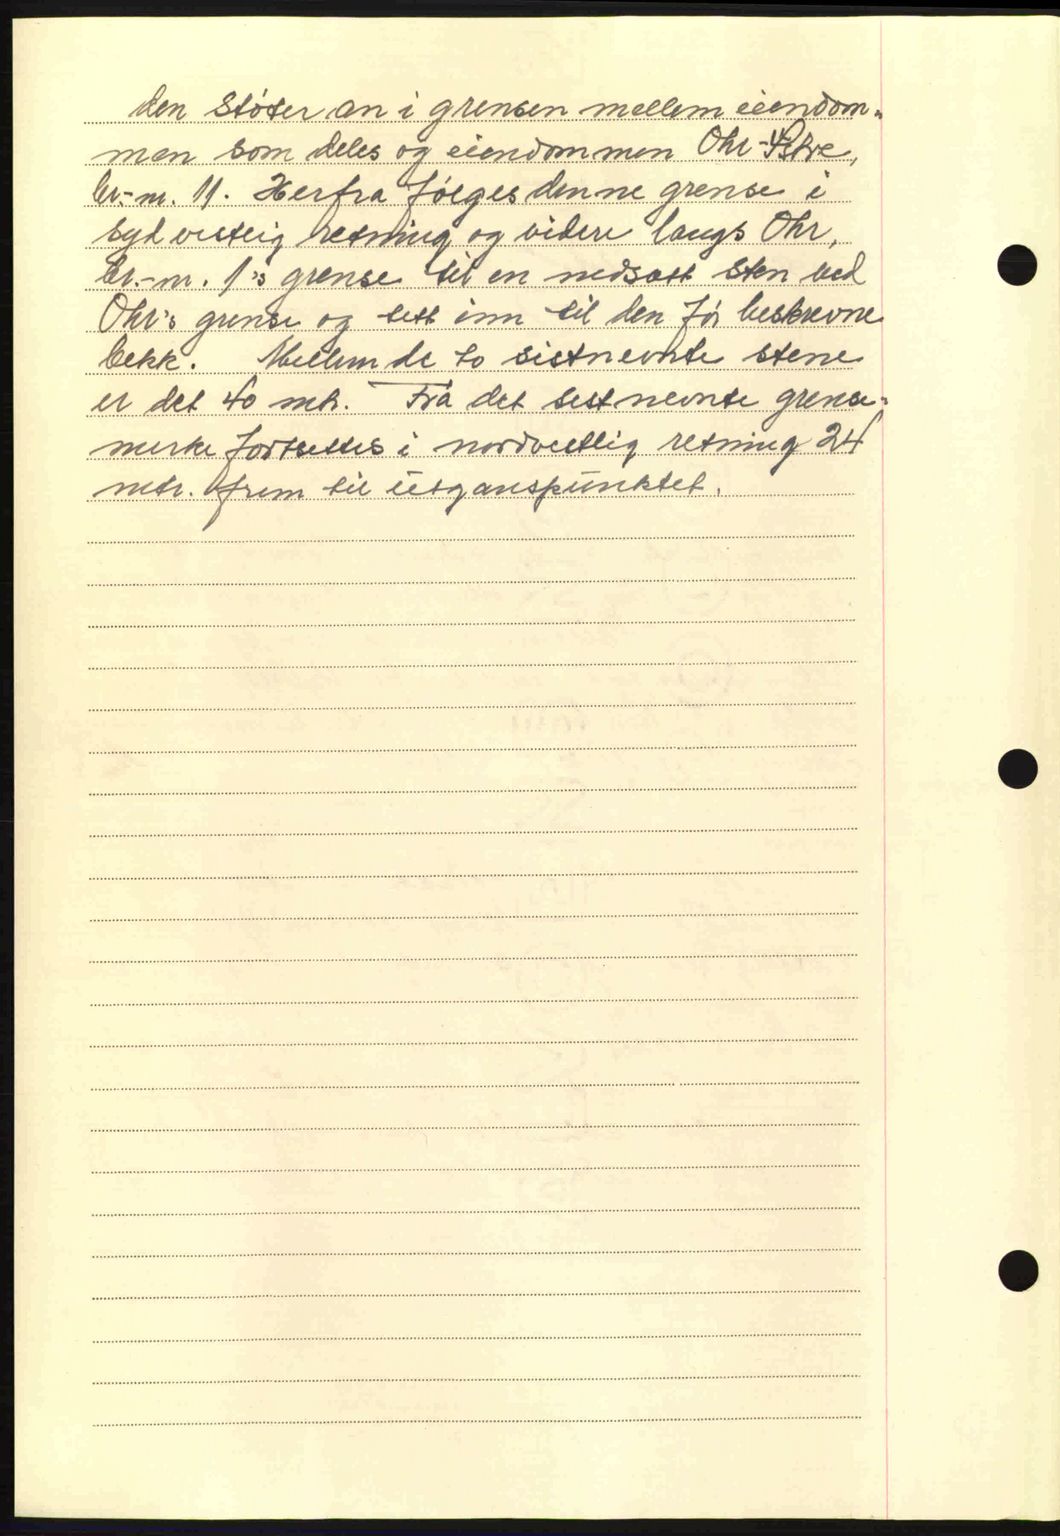 den støter an i grensen mellem eiendom=
men som deles og eiendommen Ohr-Østre,
br.-nr. 11. Herfra følges denne grense i
sydvestlig retning og videre langs Ohr,
br.-nr. 1's grense til en nedsatt sten ved
Ohr's grense og tett inn til den før beskrevne
bekk. Mellem de to sistnevnte stene
er det 40 mtr. Fra det sistnevnte grense=
merke fortsettes i nordvestlig retning 24
mtr. frem til utganspunktet.